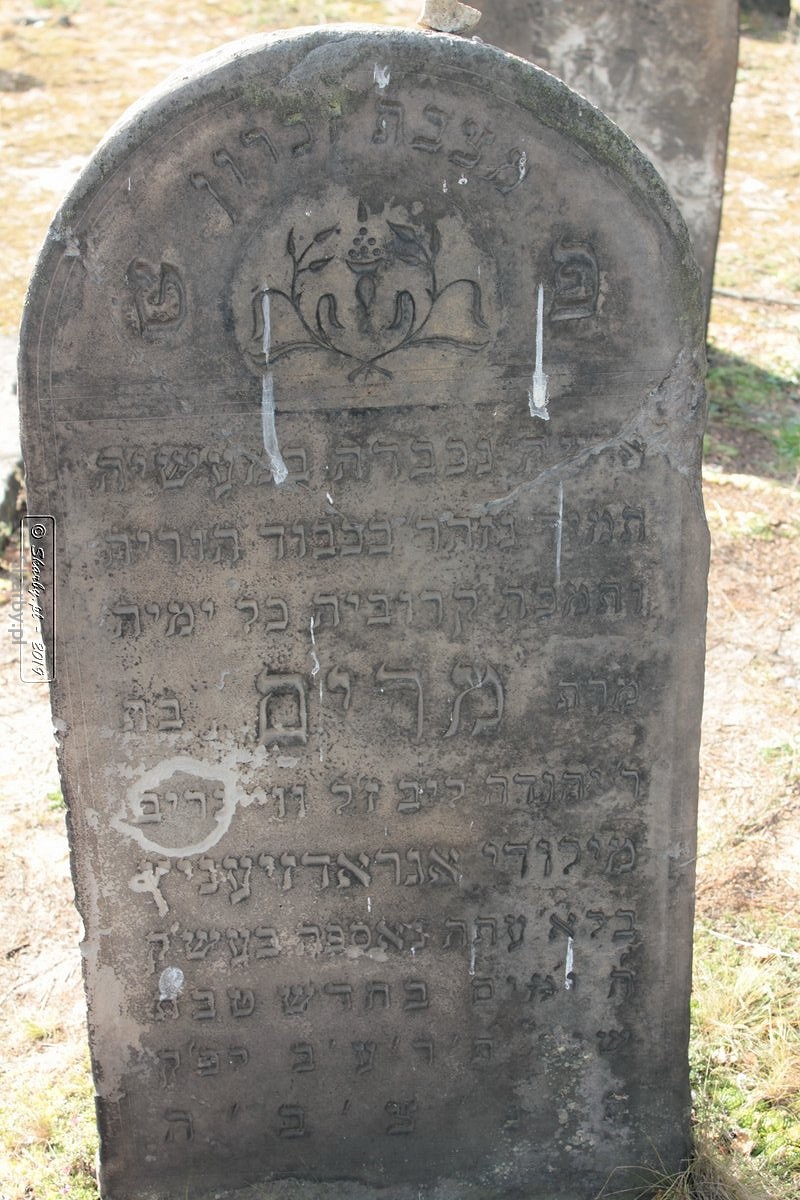 מצבת זכרון
פ ט
נכבדה במעשיה
תמיד נזהר בכבוד הוריה
ותמכה קרוביה כל ימיה
מרת מרים בת
ר יהודה ליב זל
מילודי אגראדזיעניץ
בלא עתה נאספה בעש״ק
ח ימים בחדש טבת
ת ר ע ב לפק
ת נ צ ב ה
© Skarby.pl - 2019